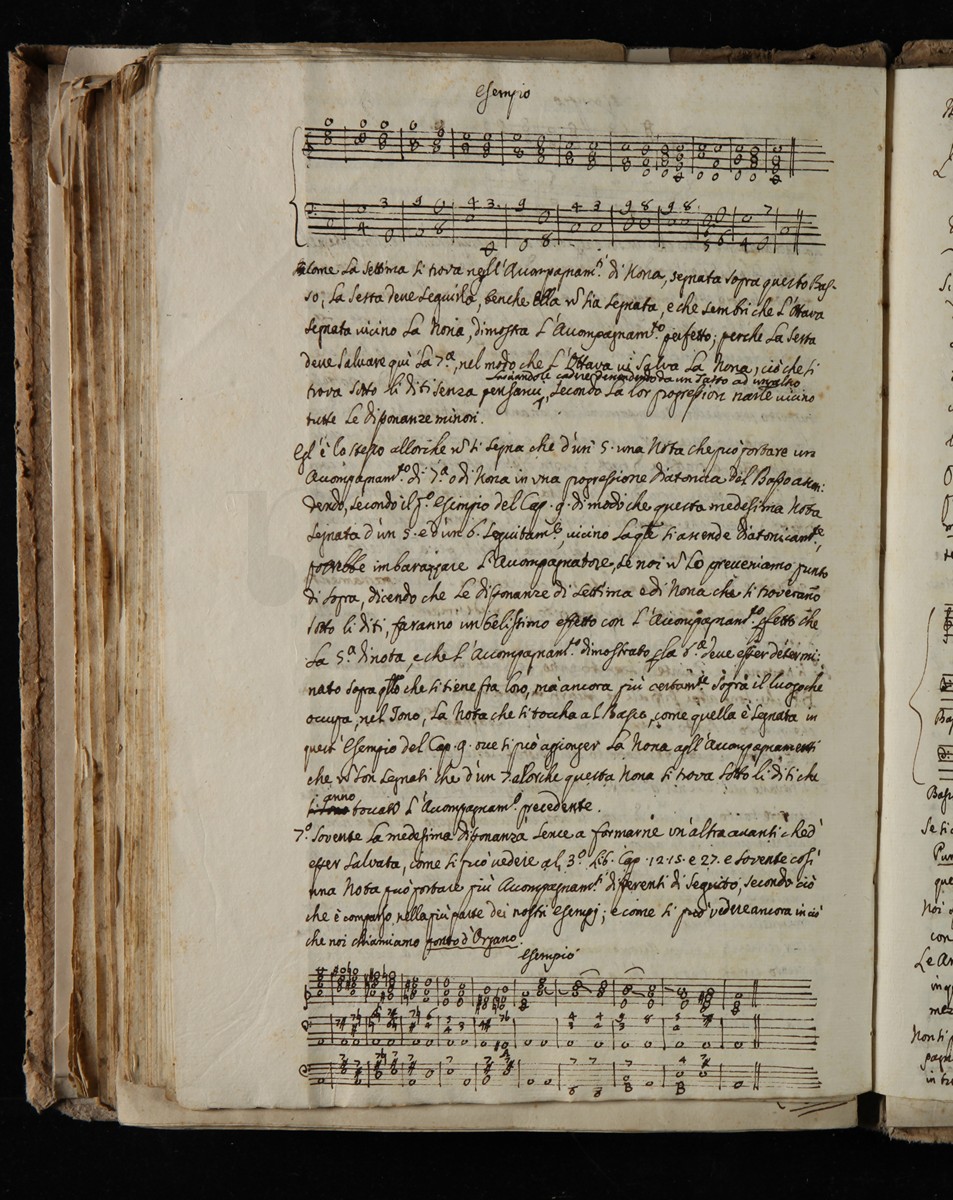 Esempio
Come La settima si trova negl'Accompagnam.ti di Nona, segnata sopra questo Bas-
so, La Sesta deve seguirla, benche ella ñ sia segnata, e che sembri che L'Ottava
segnata vicino La Nona, dimostra L'Accompagnam.to perfetto; perche La Sesta
deve Salvare qui La 7.a, nel modo che L'Ottava vi Salva La Nona; ciò che si
lasciandole cadere, discendendo da un Tasto ad un altro
trova sotto li diti senza pensarvi, secondo La lor progression vicino
tutte Le disonanze minori.
Egl'è lo stesso allorche ñ si segna che d'un 5. una Nota che può portare un
Accompagnam.to di 7.a o di Nona in una progressione diatonica del Basso ascen:
dendo, secondo il p.o Esempio del Cap. 9. di modo che questa medesima Nota
segnata d'un 5. e d'un 6. seguitam.te, vicino La qle si ascende diatonicam.te,
potrebbe imbarazzare L'Accompagnatore, se noi ñ Lo preveniamo punto
di sopra, dicendo che Le disonanze di settima e di Nona che si troveranno
sotto li diti, faranno un belissimo effetto con L'Accompagnam.to pfetto che
La 5.a dinota, e che L'Accompagnam.to dimostrato p la 6.a deve esser determi:
nato sopra qllo che si tiene fra loro, mà ancora più certam.te sopra il luogo che
occupa, nel Tono, La Nota che si toccha al Basso, come quella è segnata in
quest'Esempio del Cap. 9. ove si può aggionger La Nona agl'Accompagnamenti
che ñ son segnati che d'un 7 alorche questa Nona si trova sotto li diti che
anno
toccato L'Accompagnam.to precedente.
7.o Sovente La medesima disonanza a formarne un'altra avanti ched'
esser salvata, come si può vedere al 3.o Lib. Cap. 12. 15. e 27. e sovente così
una Nota può portare più Accompagnam.ti differenti di seguito, secondo ciò
che è comparso nella più parte dei nostri Esempj; e come si può vedere ancora in ciò
che noi chiamiamo ponto d'Organo.
Esempio